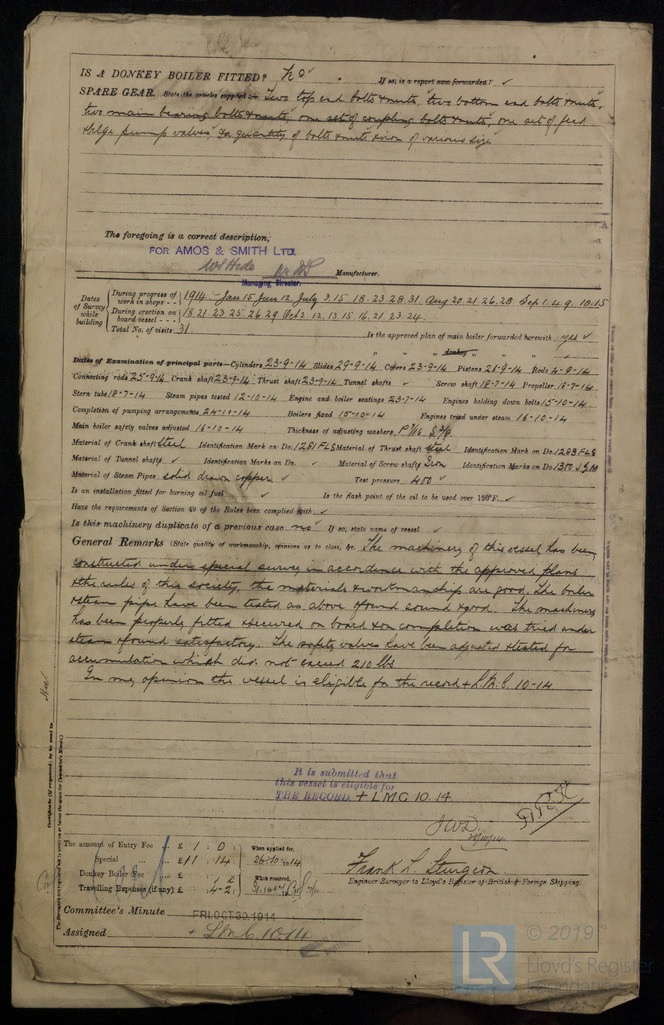 IS A DONKEY BOILER FITTED? No If so, is a report now forwarded?
SPARE GEAR. State the articles supplied:— Two top end bolts & nuts, two bottom end bolts & nuts,
two main bearing bolts & nuts, one set of coupling bolts & nuts, one set of feed
& bilge pump valves & a quantity of bolts & nuts & iron of various size
The foregoing is a correct description,
FOR AMOS & SMITH LTD.
Manufacturer.
Managing Director.
Dates of Survey while building
During progress of work in shops - - 1914 Jan 15 Jun 12 July 3. 15 18. 23. 28 31 Aug 20. 21. 26. 28 Sep 1. 4. 9. 10. 15
During erection on board vessel - - - 18. 21. 23. 25. 26. 29 Oct 2. 12. 13. 15. 16. 21. 23. 24.
Total No. of visits 31 Is the approved plan of main boiler forwarded herewith yes
" " " donkey " " "
Dates of Examination of principal parts—Cylinders 23-9-14 Slides 29-9-14 Covers 23-9-14 Pistons 26-9-14 Rods 4-9-14
Connecting rods 25-9-14 Crank shaft 23-9-14 Thrust shaft 23-9-14 Tunnel shafts Screw shaft 18-7-14 Propeller 18-7-14
Stern tube 18-7-14 Steam pipes tested 12-10-14 Engine and boiler seatings 23-7-14 Engines holding down bolts 15-10-14
Completion of pumping arrangements 24-10-14 Boilers fixed 15-10-14 Engines tried under steam 16-10-14
Main boiler safety valves adjusted 16-10-14 Thickness of adjusting washers
Material of Crank shaft Steel Identification Mark on Do. 1281 FLS Material of Thrust shaft Steel Identification Mark on Do. 1283 FLS
Material of Tunnel shafts Identification Marks on Do. Material of Screw shafts Iron Identification Marks on Do. 1350
Material of Steam Pipes solid drawn copper Test pressure 400
Is an installation fitted for burning oil fuel Is the flash point of the oil to be used over 150°F.
Have the requirements of Section 49 of the Rules been complied with
Is this machinery duplicate of a previous case no If so, state name of vessel
General Remarks (State quality of workmanship, opinions as to class, &c. The machinery of this vessel has been
constructed under special survey in accordance with the approved plans
& the rules of this society, the materials & workmanship are good. The boiler
& steam pipe have been tested as above & found sound & good. The machinery
has been properly fitted & secured on board & on completion was tried under
steam & found satisfactory. The safety valves have been adjusted & tested for
accumulation which did not exceed 210 lbs
In my opinion the vessel is eligible for the record + L.M.C. 10-14
It is submitted that
this vessel is eligible for
THE RECORD + LMC 10.14
JWD
The amount of Entry Fee £ 1 : 0 When applied for,
Special £ 11 : 14 26.10.1914
Donkey Boiler Fee £ When received,
Travelling Expenses (if any) £ 4-2
Frank L. Sturgeon
Engineer Surveyor to Lloyd's Register of British & Foreign Shipping.
Committee's Minute FRI. OCT. 30. 1914
Assigned + LMC 10.14
LR © 2019
Lloyd's Register
Foundation